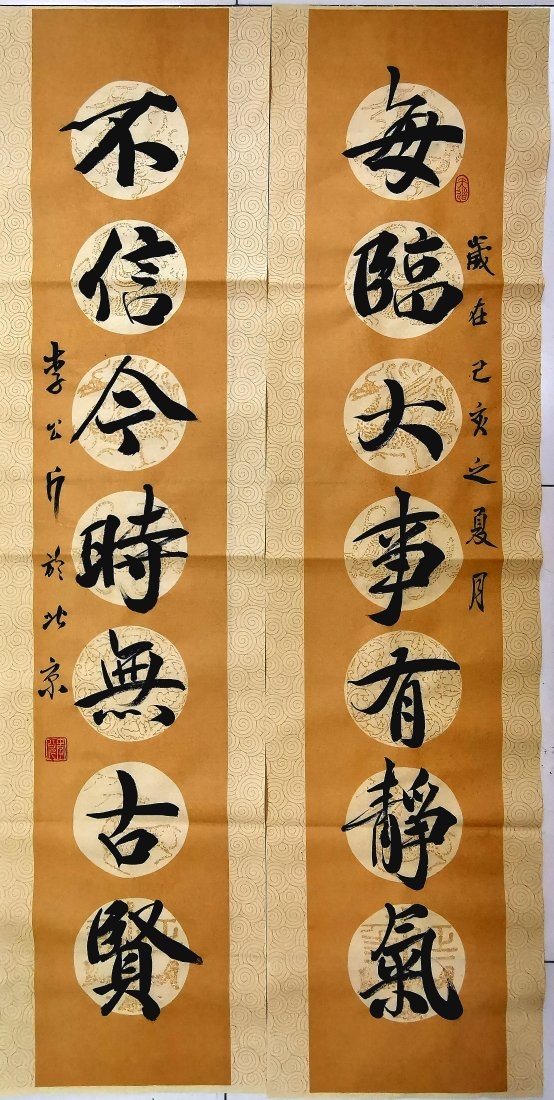 每臨大事有靜氣
歲在己亥之夏月
不信今時無古賢
李公斤於北京